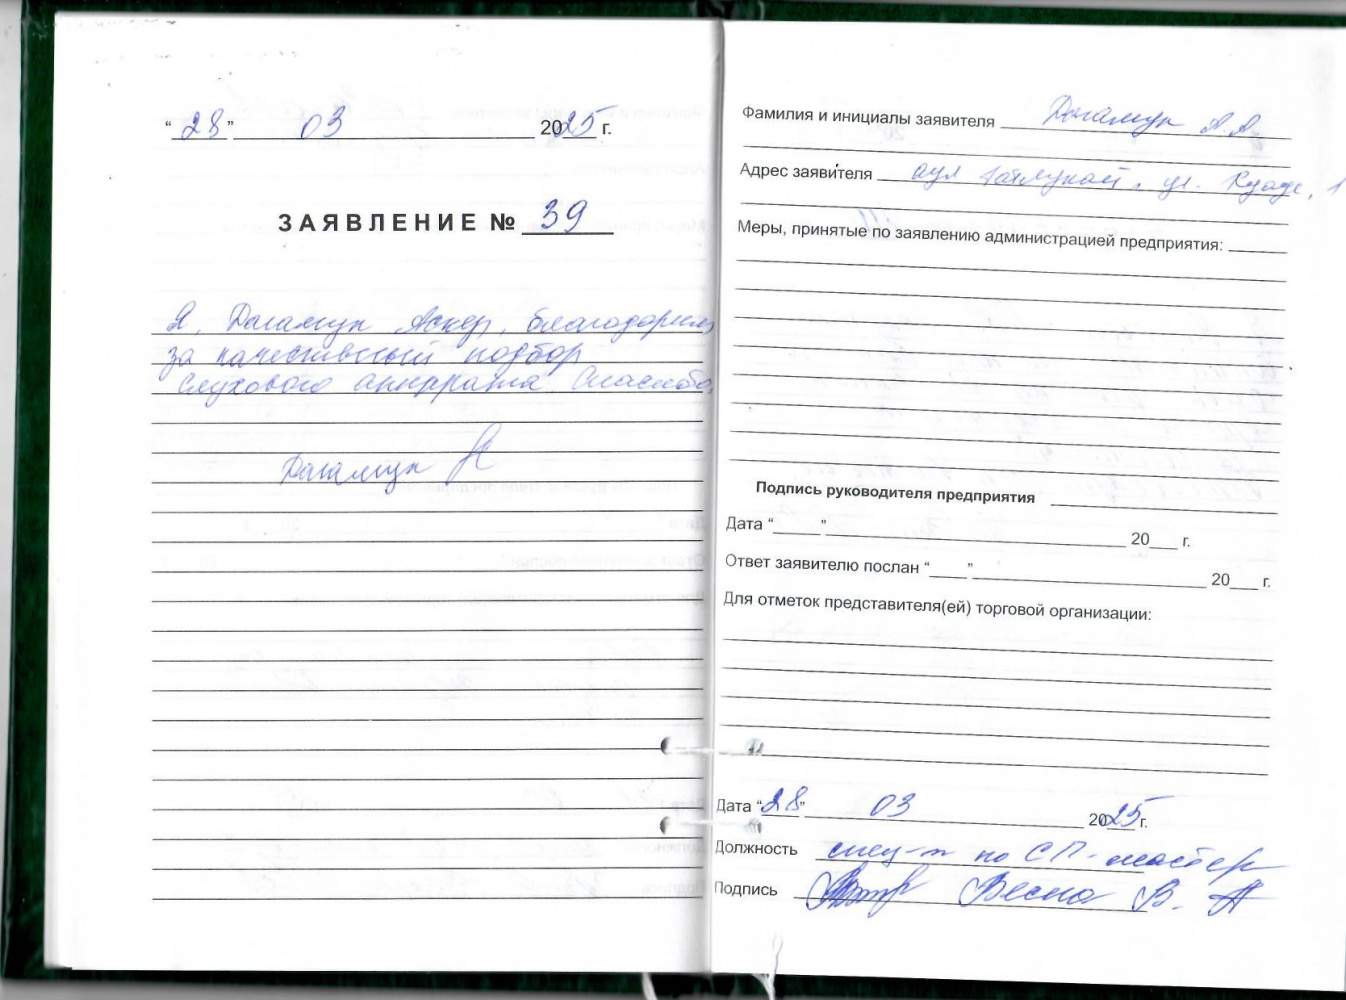 “28” 03 2025 г.
ЗАЯВЛЕНИЕ № 39
Я, Дагамук Аскер, благодарим
за качественный подбор
слухового аппарата. Спасибо.
Дагамук
Фамилия и инициалы заявителя Дагамук А.А.
Адрес заявителя аул ул. 1
Меры, принятые по заявлению администрацией предприятия:
Подпись руководителя предприятия
Дата “ ” 20 г.
Ответ заявителю послан “ ” 20 г.
Для отметок представителя(ей) торговой организации:
Дата “28” 03 2025 г.
Должность спец-т по СП-мастер
Подпись Весна В.